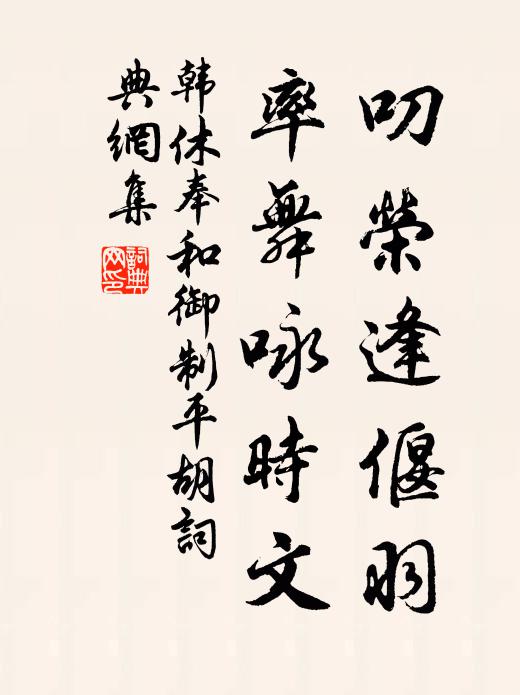 叨榮逢偃羽
率舞咏時文
韩休奉和御制平胡詞
典網集
詞典
网印